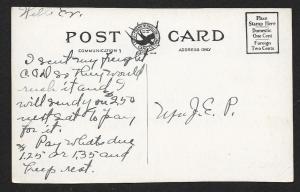 POST CARD
COMMUNICATION
ADDRESS ONLY
Place
Stamp Here
Domestic
One Cent
Foreign
Two Cents
I sent my freight
COD so they would
rush it and I
will send you $2.50
next Sat to pay
for it.
Pay whats due
1.25 or 1.35 and
keep rest.
J. E. P.